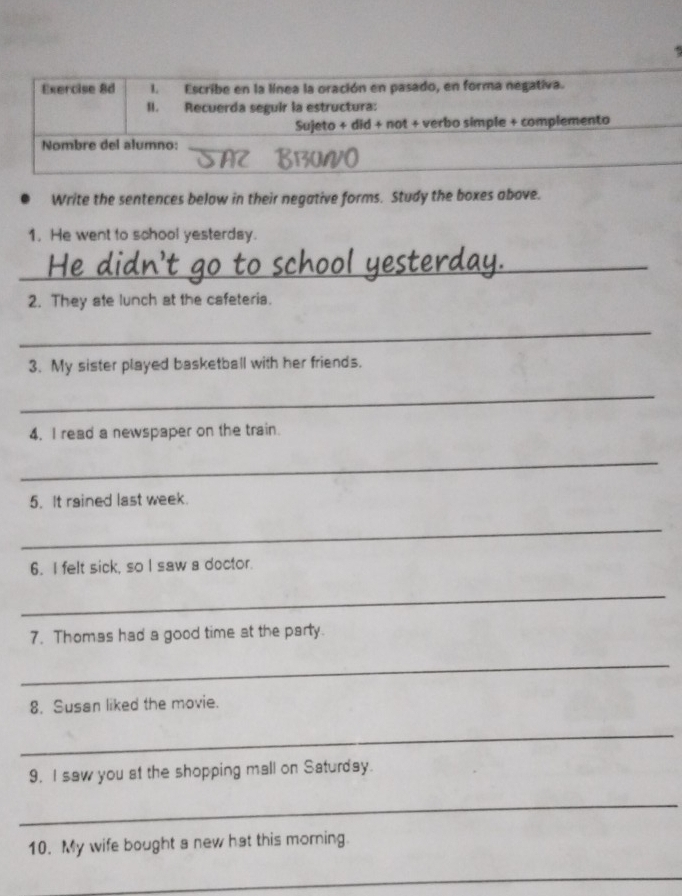 Exercise 8d
I. Escribe en la línea la oración en pasado, en forma negativa.
II. Recuerda seguir la estructura:
Sujeto + did + not + verbo simple + complemento
Nombre del alumno:
• Write the sentences below in their negative forms. Study the boxes above.
1. He went to school yesterday.
He didn't go to school yesterday.
2. They ate lunch at the cafeteria.
3. My sister played basketball with her friends.
4. I read a newspaper on the train.
5. It rained last week.
6. I felt sick, so I saw a doctor.
7. Thomas had a good time at the party.
8. Susan liked the movie.
9. I saw you at the shopping mall on Saturday.
10. My wife bought a new hat this morning.